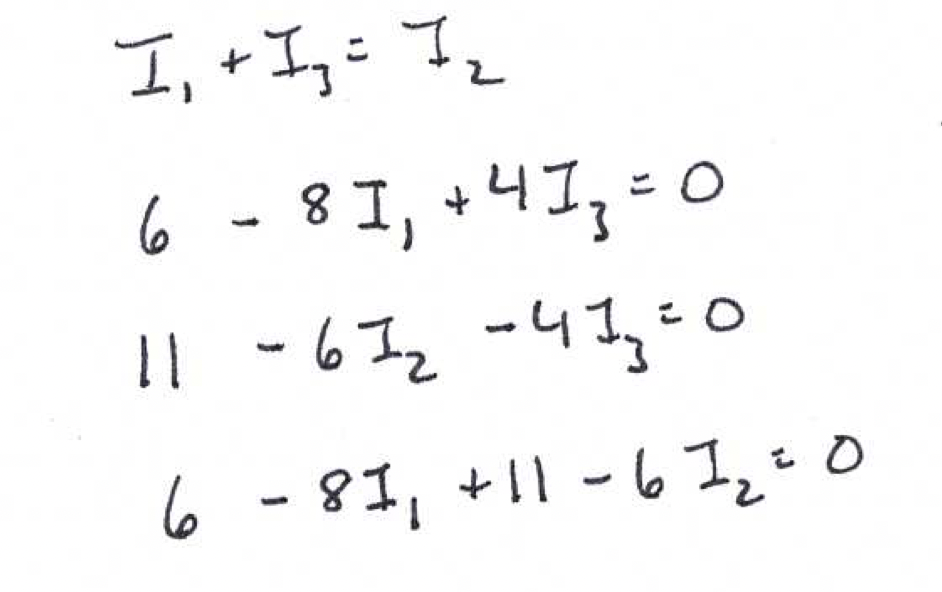 I₁ + I₃ = I₂
6 - 8I₁ + 4I₃ = 0
11 - 6I₂ - 4I₃ = 0
6 - 8I₁ + 11 - 6I₂ = 0